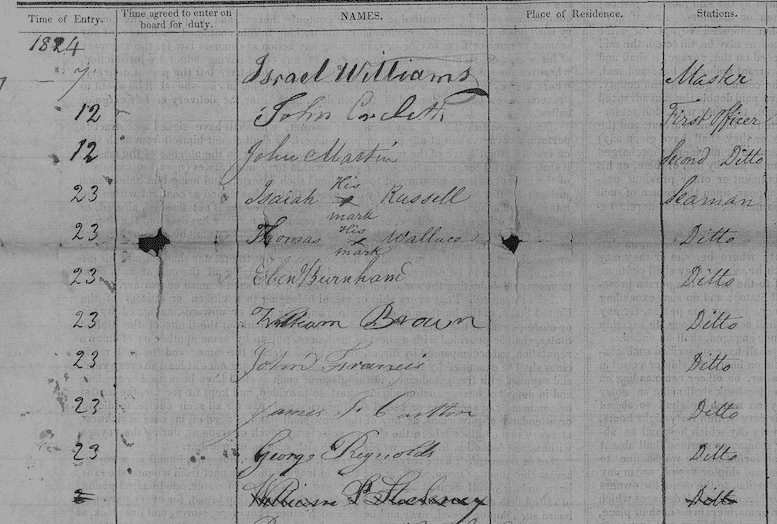 Time of Entry. Time agreed to enter on board for duty. NAMES. Place of Residence. Stations.
1824
7 Israel Williams Master
12 John First Officer
12 John Martin Second Ditto
23 Isaiah His x mark Russell Seaman
23 Thomas His x mark Wallace Ditto
23 Eben Burnham Ditto
23 William Brown Ditto
23 John Francis Ditto
23 James F Carlton Ditto
23 George Reynolds Ditto
William Ditto